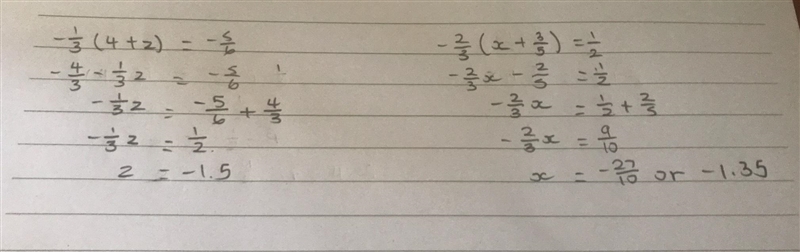 -1/3 (4 + z) = -5/6
-4/3 - 1/3 z = -5/6
-1/3 z = -5/6 + 4/3
-1/3 z = 1/2
z = -1.5
-2/3 (x + 3/5) = 1/2
-2/3 x - 2/5 = 1/2
-2/3 x = 1/2 + 2/5
-2/3 x = 9/10
x = -27/10 or -1.35